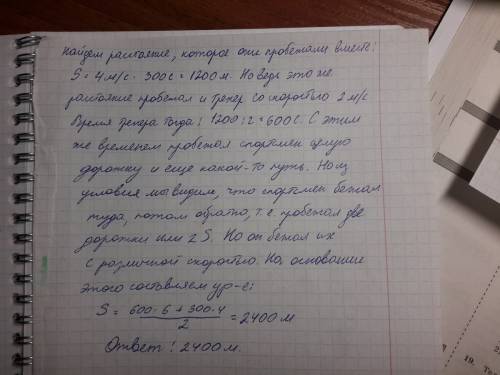 Найдем растояние, которое они пробежали вместе:
S = 4 м/с · 300 с = 1200 м. Но ведь это же
растояние пробежал и тренер со скоростью 2 м/с
Время тренера тогда: 1200 : 2 = 600 с. С этим
же временем пробежал спортсмен целую
дорожку и еще какой-то путь. Но из
условия мы видим, что спортсмен бежал
туда, потом обратно, т.е. пробежал две
дорожки или 2 S. Но он бежал их
с различной скоростью. На основание
этого составляем ур-е:
S = 600 · 6 + 300 · 4 / 2 = 2400 м
Ответ: 2400 м.
19.